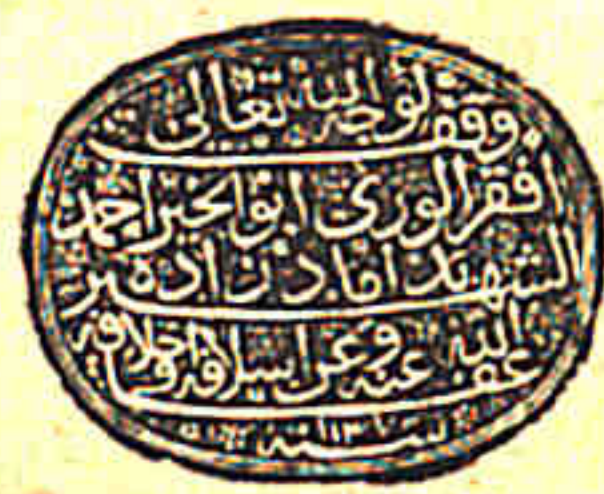 وقف لوجه الله تعالى
أفقر الورى ابو الخير احمد
الشهير بداماد زاده
عفا الله عنه وعن اسلافه واخلافه
سنة